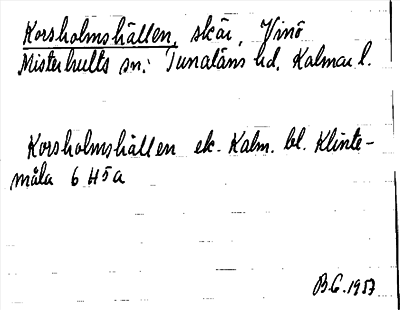 Korsholmshällen, skär, Vinö
Misterhults sn: Tunaläns hd. Kalmar l.
Korsholmshällen ek. Kalm. bl. Klinte-
måla 6 H 5 a
B.G. 1957